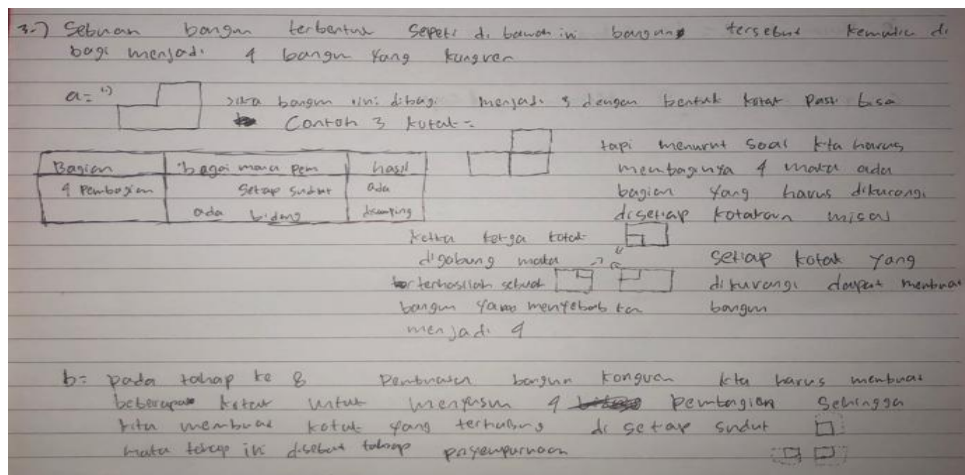 3.) Sebuah bangun terbentuk seperti di bawah ini bangun tersebut kemudian di
bagi menjadi 4 bangun yang kungruen
a = jika bangun ini dibagi menjadi 3 dengan bentuk kotak pasti bisa
Contoh 3 kotak =
tapi menurut soal kita harus
membaginya 4 maka ada
bagian yang harus dikurangi
disetiap kotaknya misal
Bagian bagai mana pem hasil
4 Pembagian Setiap sudut ada
ada bidang disamping
ketika ketiga kotak
digabung maka
terhasillah sebuah
bangun yang menyebabkan
menjadi 4
Setiap kotak yang
dikurangi dapat membuat
bangun
b = pada tahap ke 8 Pembuatan bangun kongruen kita harus membuat
beberapa kotak untuk menyusun 4 pembagian Sehingga
kita membuat kotak yang terhubung di setiap sudut
maka tahap ini disebut tahap penyempurnaan